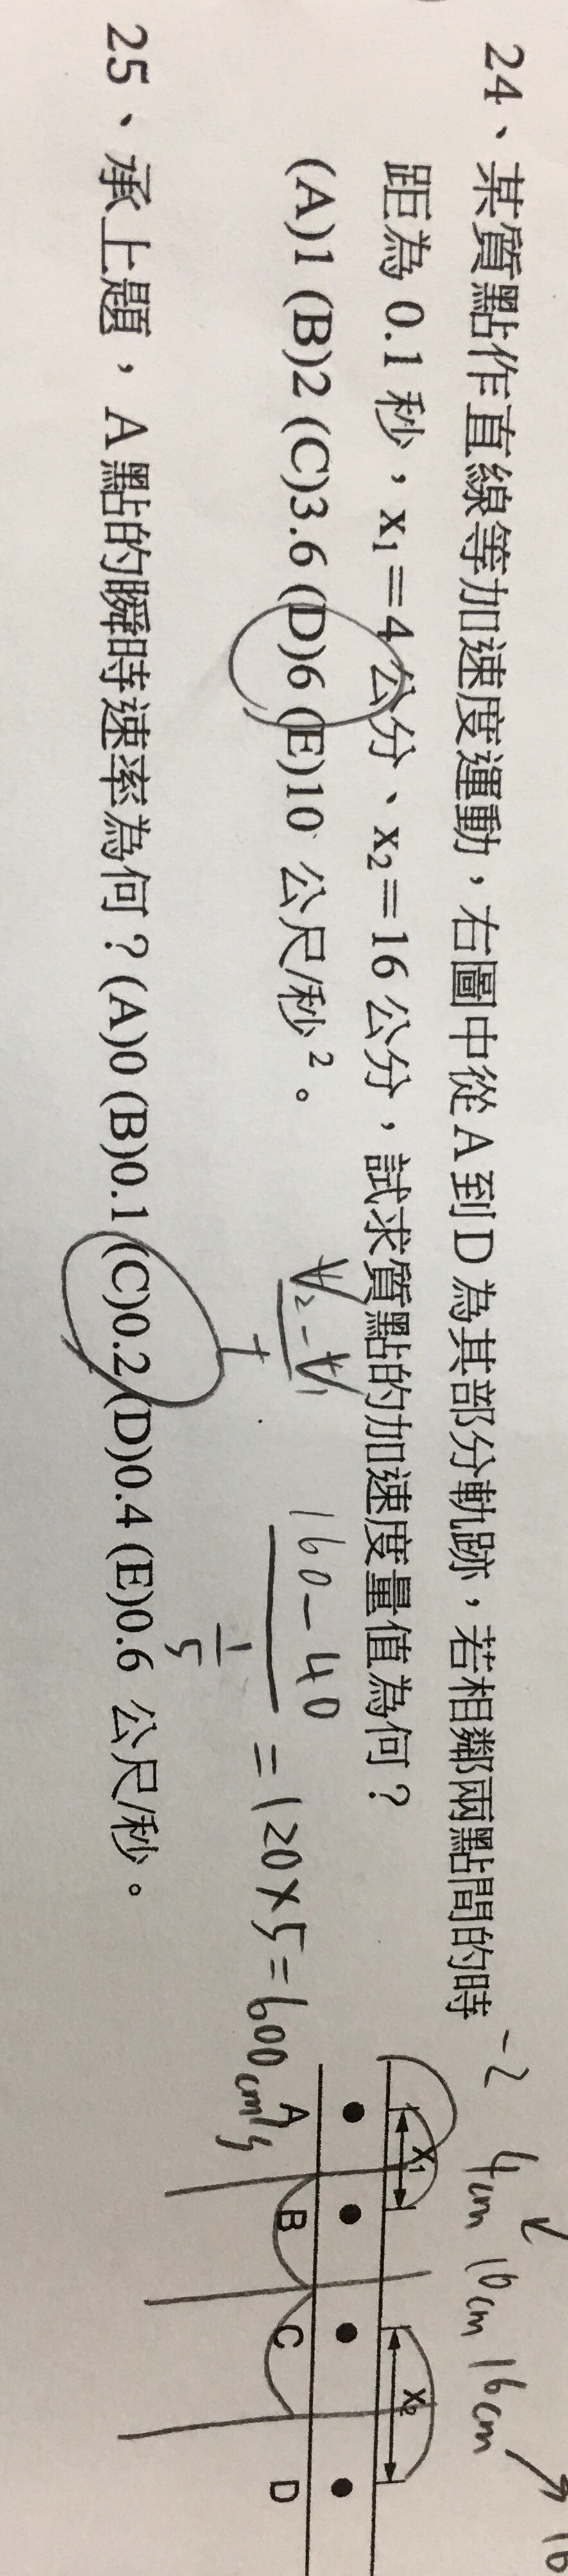 24、某質點作直線等加速度運動，右圖中從A到D為其部分軌跡，若相鄰兩點間的時
距為 0.1 秒，x₁＝4 公分、x₂＝16 公分，試求質點的加速度量值為何？
(A)1 (B)2 (C)3.6 (D)6 (E)10 公尺/秒²。
25、承上題，A點的瞬時速率為何？(A)0 (B)0.1 (C)0.2 (D)0.4 (E)0.6 公尺/秒。
V₂-V₁
T
160-40
1
5
=120×5=600cm/s
-2 4cm 10cm 16cm
x₁ x₂
A B C D